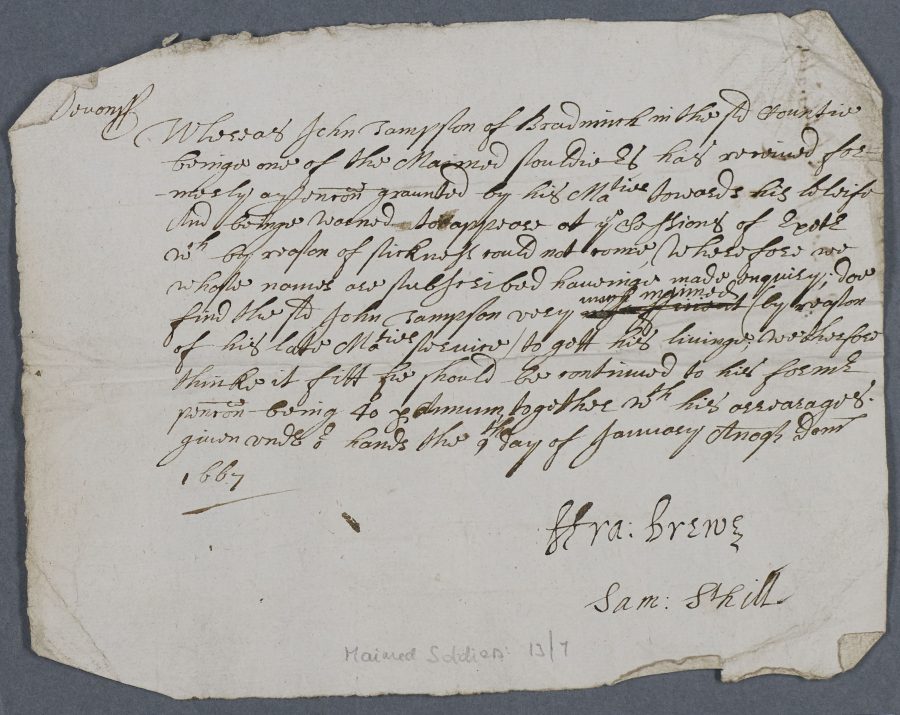 Devonss
Whereas John Sampson of Bradninch in the sd Countie
beinge one of the Maimed souldiers has received for=
merly a pencon graunted by his Maties towards his releife
And beinge warned to appeare at ye Sessions of Exetr
wch by reason of sickness could not come, Wherefore we
whose names are subscribed haveinge made enquiry; doe
find the sd John Sampson very much maimed (by reason
of his late Maties service) to gett his livinge, wee therefore
thinke it fitt he should be continued to his formr
pencon being 40s p Annum together wth his arrearages.
given undr or hands the 9th day of January Anoqr Dom
1667
Fra: Brewer
Sam: Sthill
Maimed Soldiers: 13/7